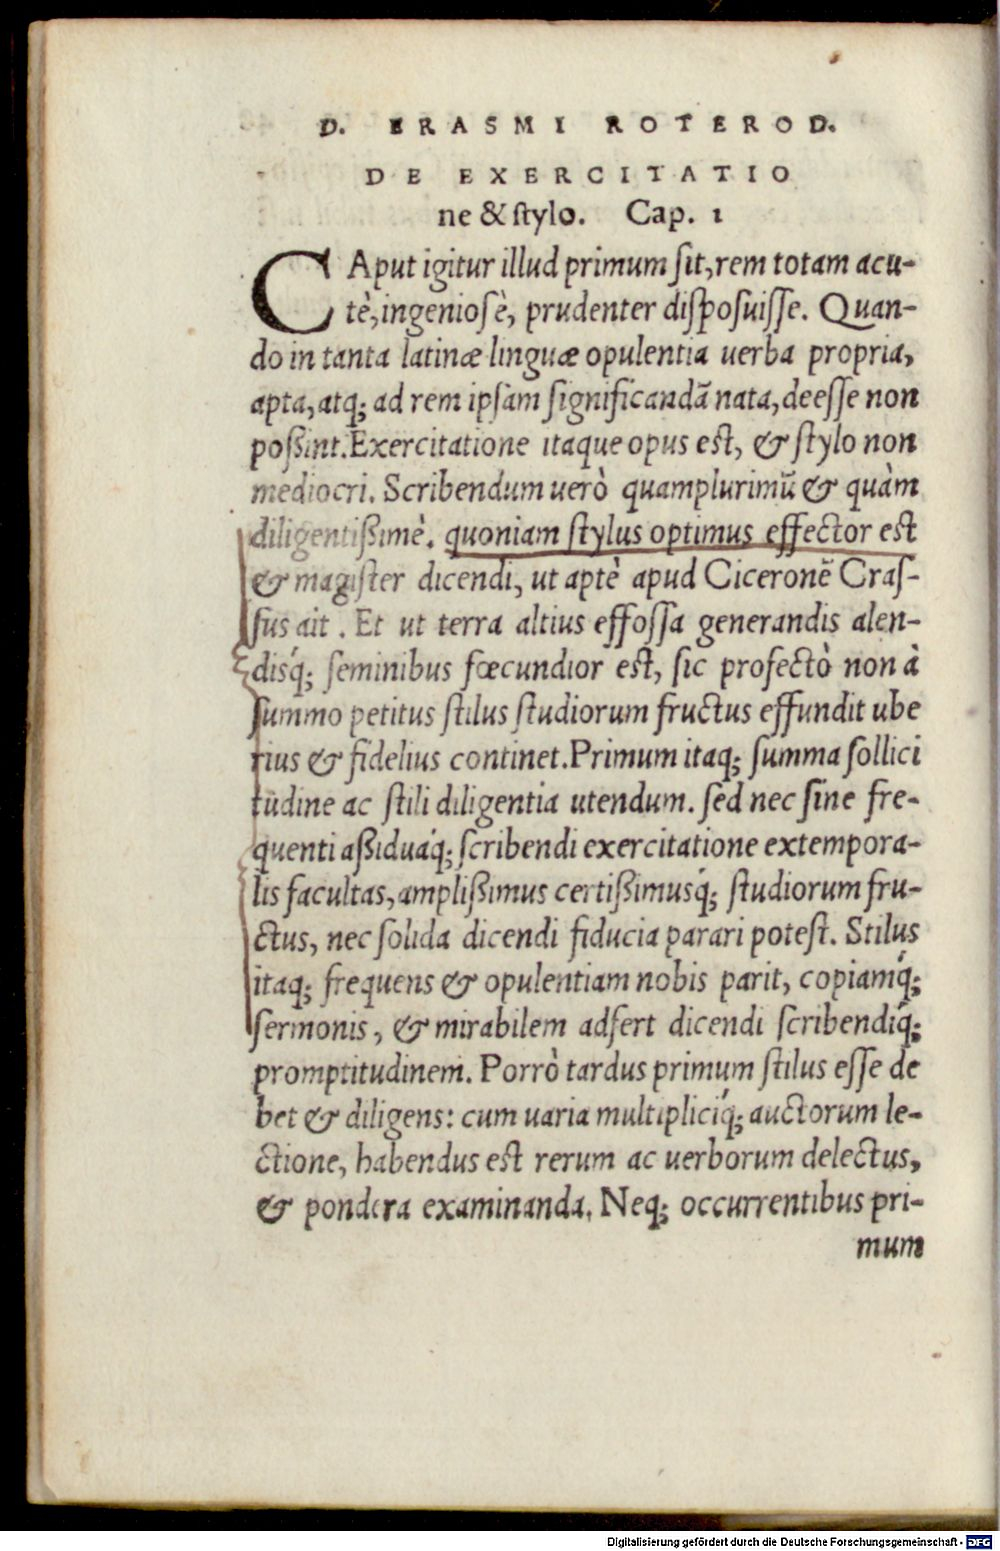 D. ERASMI ROTEROD.
DE EXERCITATIO
ne & stylo. Cap. 1
CAput igitur illud primum sit, rem totam acu-
tè, ingeniosè, prudenter disposuisse. Quan-
do in tanta latinæ linguæ opulentia uerba propria,
apta, atq; ad rem ipsam significandā nata, deesse non
possint. Exercitatione itaque opus est, & stylo non
mediocri. Scribendum uerò quamplurimū & quàm
diligentissimè. quoniam stylus optimus effector est
& magister dicendi, ut aptè apud Ciceronē Cras-
sus ait. Et ut terra altius effossa generandis alen-
disq́; seminibus fœcundior est, sic profectò non à
summo petitus stilus studiorum fructus effundit ube
rius & fidelius continet. Primum itaq; summa sollici
tudine ac stili diligentia utendum. sed nec sine fre-
quenti assiduáq; scribendi exercitatione extempora-
lis facultas, amplissimus certissimusq́; studiorum fru-
ctus, nec solida dicendi fiducia parari potest. Stilus
itaq; frequens & opulentiam nobis parit, copiamq́;
sermonis, & mirabilem adfert dicendi scribendiq́;
promptitudinem. Porrò tardus primum stilus esse de
bet & diligens: cum uaria multipliciq́; auctorum le-
ctione, habendus est rerum ac uerborum delectus,
& pondera examinanda. Neq; occurrentibus pri-
mum
Digitalisierung gefördert durch die Deutsche Forschungsgemeinschaft - DFG